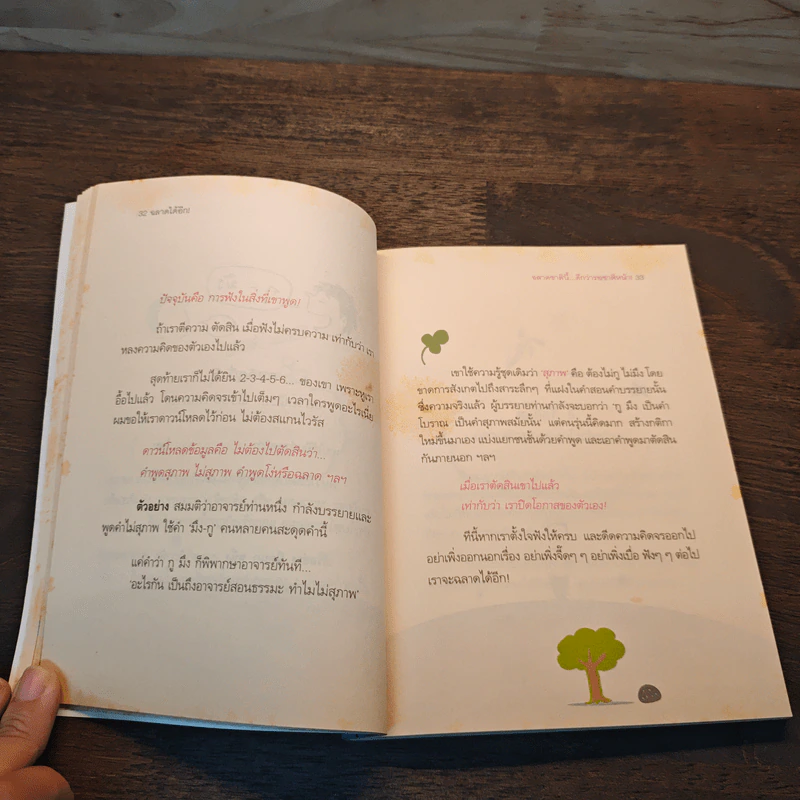 32 ฉลาดได้อีก!
ปัจจุบันคือ การฟังในสิ่งที่เขาพูด!
ถ้าเราตีความ ตัดสิน เมื่อฟังไม่ครบความ เท่ากับว่า เรา
หลงความคิดของตัวเองไปแล้ว
สุดท้ายเราก็ไม่ได้ยิน 2-3-4-5-6... ของเขา เพราะหูเรา
อื้อไปแล้ว โดนความคิดจรเข้าไปเต็มๆ เวลาใครพูดอะไรเนี่ย
ผมขอให้เราดาวน์โหลดไว้ก่อน ไม่ต้องสแกนไวรัส
ดาวน์โหลดข้อมูลคือ ไม่ต้องไปตัดสินว่า...
คำพูดสุภาพ ไม่สุภาพ คำพูดโง่หรือฉลาด ฯลฯ
ตัวอย่าง สมมติว่าอาจารย์ท่านหนึ่ง กำลังบรรยายและ
พูดคำไม่สุภาพ ใช้คำ ‘มึง-กู’ คนหลายคนสะดุดคำนี้
แค่คำว่า กู มึง ก็พิพากษาอาจารย์ทันที...
‘อะไรกัน เป็นถึงอาจารย์สอนธรรมะ ทำไมไม่สุภาพ’
ฉลาดชาตินี้... 33
เขาใช้ความรู้ชุดเดิมว่า ‘สุภาพ’ คือ ต้องไม่กู ไม่มึง โดย
ขาดการสังเกตไปถึงสาระลึกๆ ที่แฝงในคำสอนคำบรรยายนั้น
ซึ่งความจริงแล้ว ผู้บรรยายท่านกำลังจะบอกว่า ‘กู มึง เป็นคำ
โบราณ เป็นคำสุภาพสมัยนั้น’ แต่คนรุ่นนี้คิดมาก สร้างกติกา
ใหม่ขึ้นมาเอง แบ่งแยกชนชั้นด้วยคำพูด และเอาคำพูดมาตัดสิน
กันภายนอก ฯลฯ
เมื่อเราตัดสินเขาไปแล้ว
เท่ากับว่า เราปิดโอกาสของตัวเอง!
ทีนี้หากเราตั้งใจฟังให้ครบ และดีดความคิดจรออกไป
อย่าเพิ่งออกนอกเรื่อง อย่าเพิ่งจี๊ดๆ ๆ อย่าเพิ่งเบื่อ ฟังๆ ๆ ต่อไป
เราจะฉลาดได้อีก!